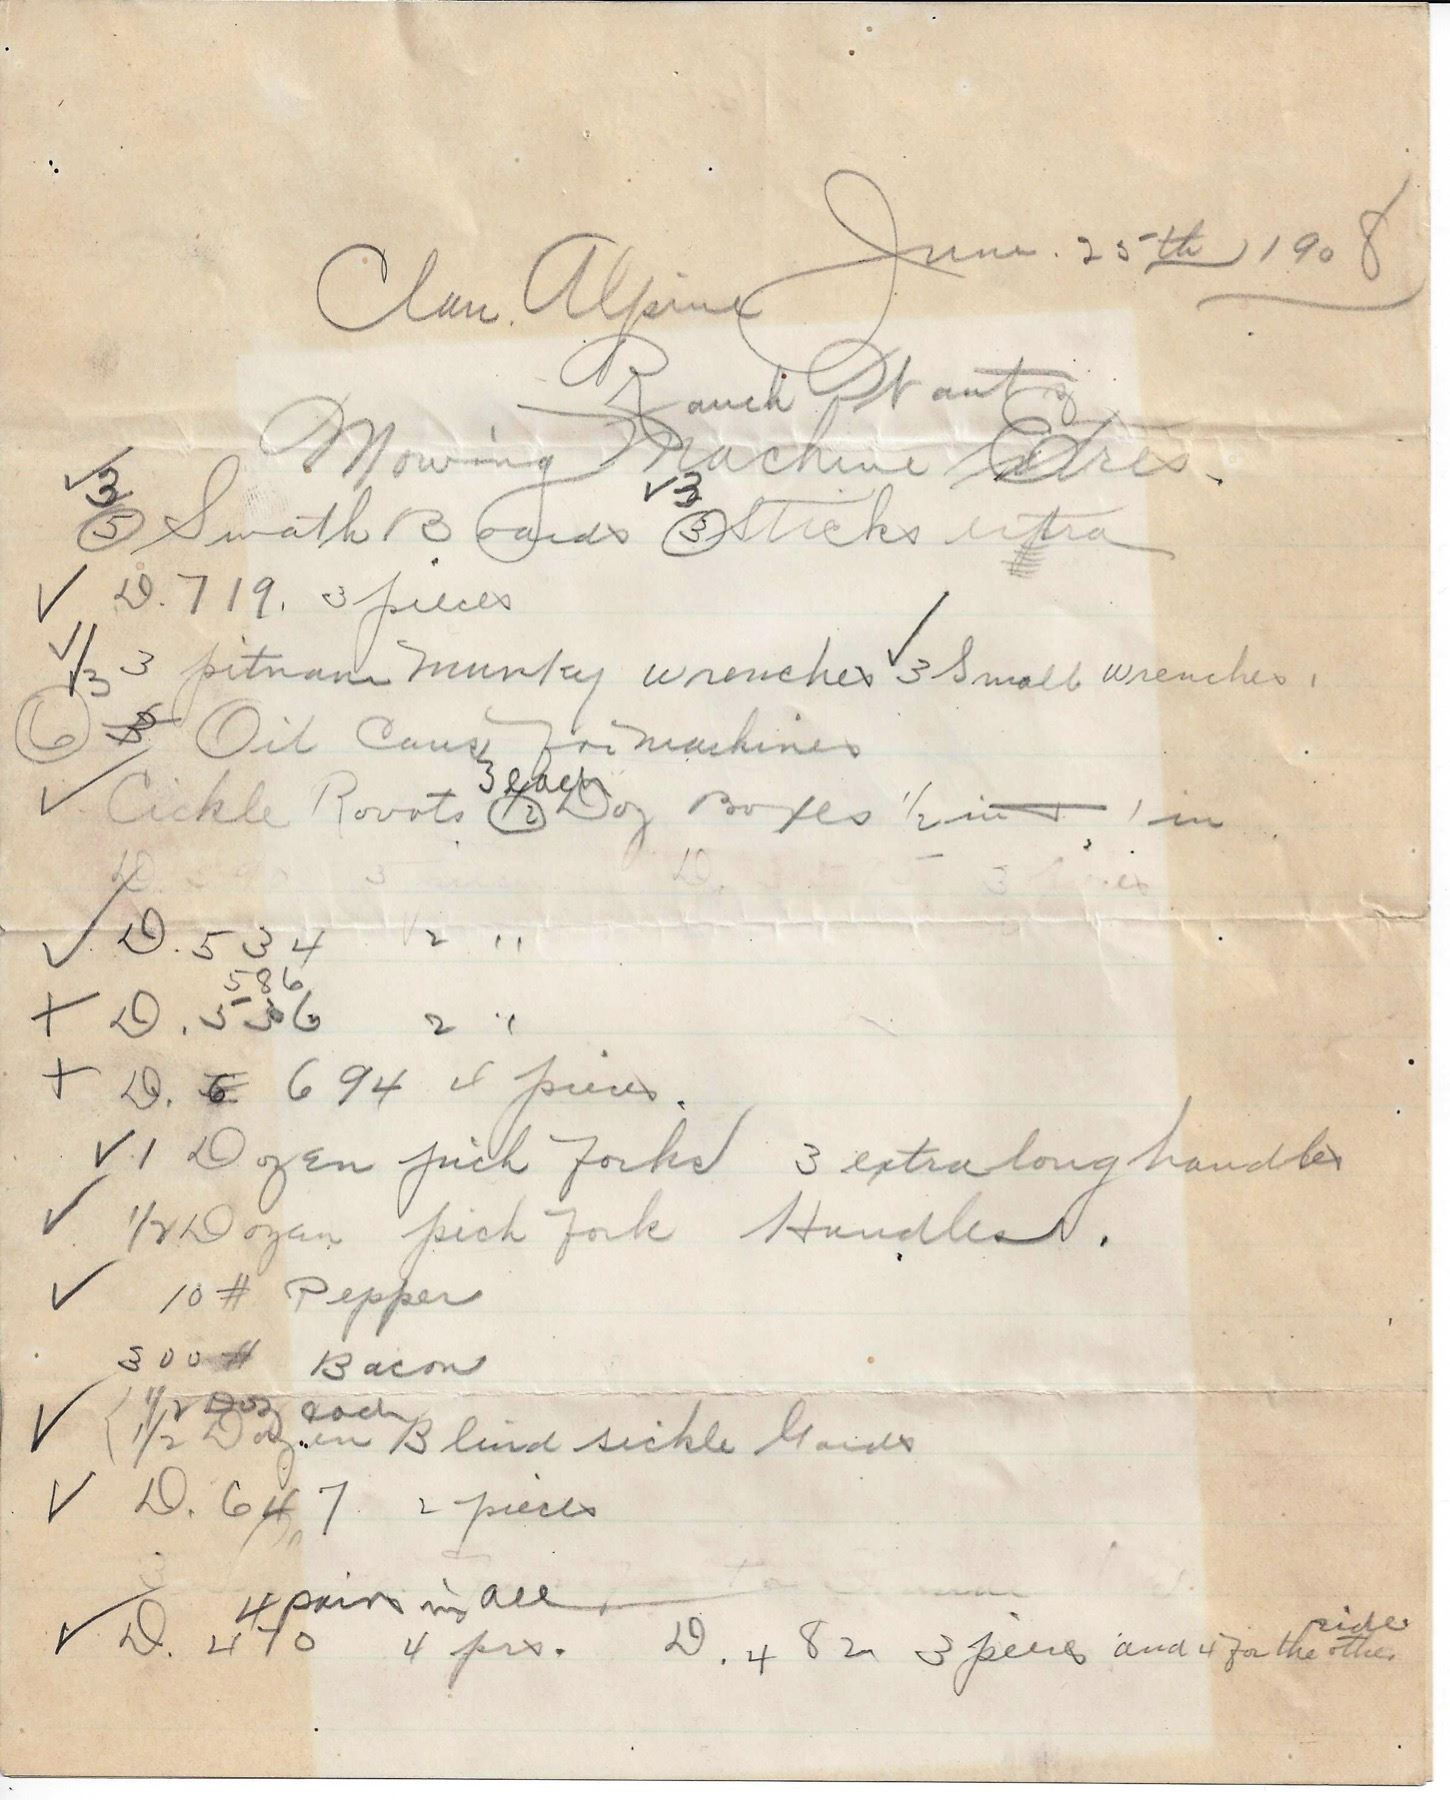 June. 25th 1908
Clan. Alpine
Ranch Wants
Mowing Machine Extres.
✓3 ✓3
5 Swath Boards 3 Sticks extra
✓ D. 719. 3 pieces
✓ ✓3 3 pitnam Munky wrenches ✓ 3 Small wrenches.
6 Oil Cans for machines
3 each
✓ Cickle Rovots 1/2 Doz Boxes 1/2 in 1 in
D. 3 D. 3
✓ D. 534 2 "
586
+ D. 536 2 "
+ D. 694 4 pieces.
✓ 1 Dozen pich forks 3 extra long handles
✓ 1/2 Dozen pich fork Handles.
✓ 10# Pepper
300# Bacon
1/2 Doz each
✓ 1/2 Dozen Blind sickle Gards
✓ D. 647 2 pieces
4 pairs in all
side
✓ D. 470 4 prs. D. 482 3 pieces and 4 for the other